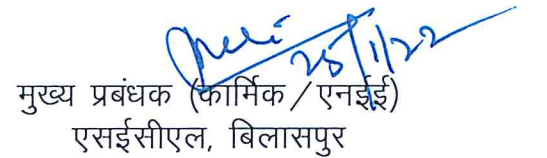 25/1/22
मुख्य प्रबंधक (कार्मिक / एनईई)
एसईसीएल, बिलासपुर